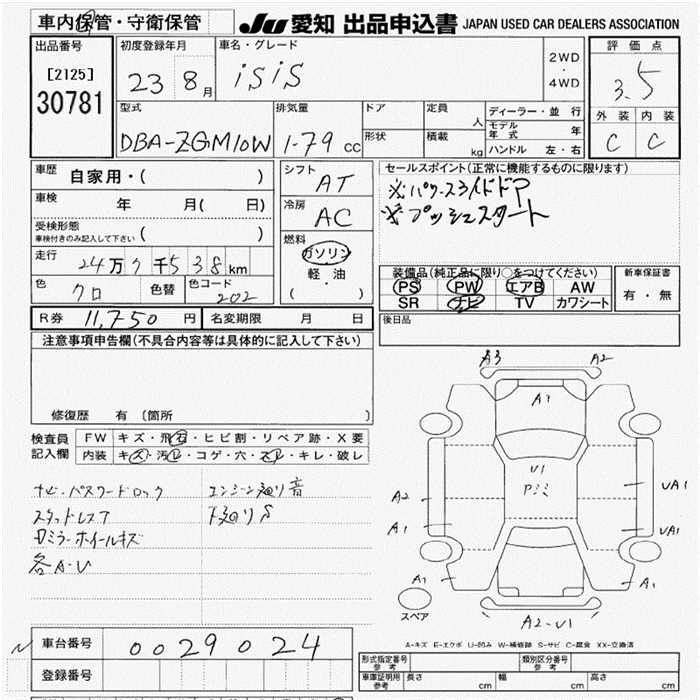 車内保管・守衛保管
JU 愛知 出品申込書 JAPAN USED CAR DEALERS ASSOCIATION
出品番号
[2125]
30781
初度登録年月
23 8月
車名・グレード
isis
2WD
・
4WD
評価点
3.5
外装 内装
C C
型式
DBA-ZGM10W
排気量
1.79 cc
ドア
形状
定員 人
積載 kg
ディーラー・並 行
モデル年式 年
ハンドル 左・右
車歴 自家用・( )
車検 年 月( 日)
受検形態
車検付きのみ記入して下さい ( )
走行 24万7千538km
色 クロ 色替 色コード 202
シフト
AT
冷房
AC
燃料
ガソリン
軽・油
( )
セールスポイント(正常に機能するものに限ります)
※パワースライドドア
※プッシュスタート
装備品(純正品に限り○をつけてください)
PS PW エアB AW
SR ナビ TV カワシート
新車保証書
有・無
R券 11,750 円 名変期限 月 日
後日品
注意事項申告欄(不具合内容等は具体的に記入して下さい)
修復歴 有 (箇所 )
検査員記入欄
FW キズ・飛石・ヒビ割・リペア跡・X要
内装 キズ・汚レ・コゲ・穴・スレ・キレ・破レ
ナビ・パスワードロック エンジン廻り音
スタッドレスT 下廻りS
Dミラーホイールキズ
各A-U
A3 A2
A1
U1
Pミミ
A2 UA1
A1 UA1
A1 A1
スペア
A2-U1
A-キズ E-エクボ U-凹み W-補修跡 S-サビ C-腐食 XX-交換済
車台番号 0029024
登録番号
型式指定番号 参考
類別区分番号 参考
車庫証明用 参考 長さ cm 幅 cm 高さ cm